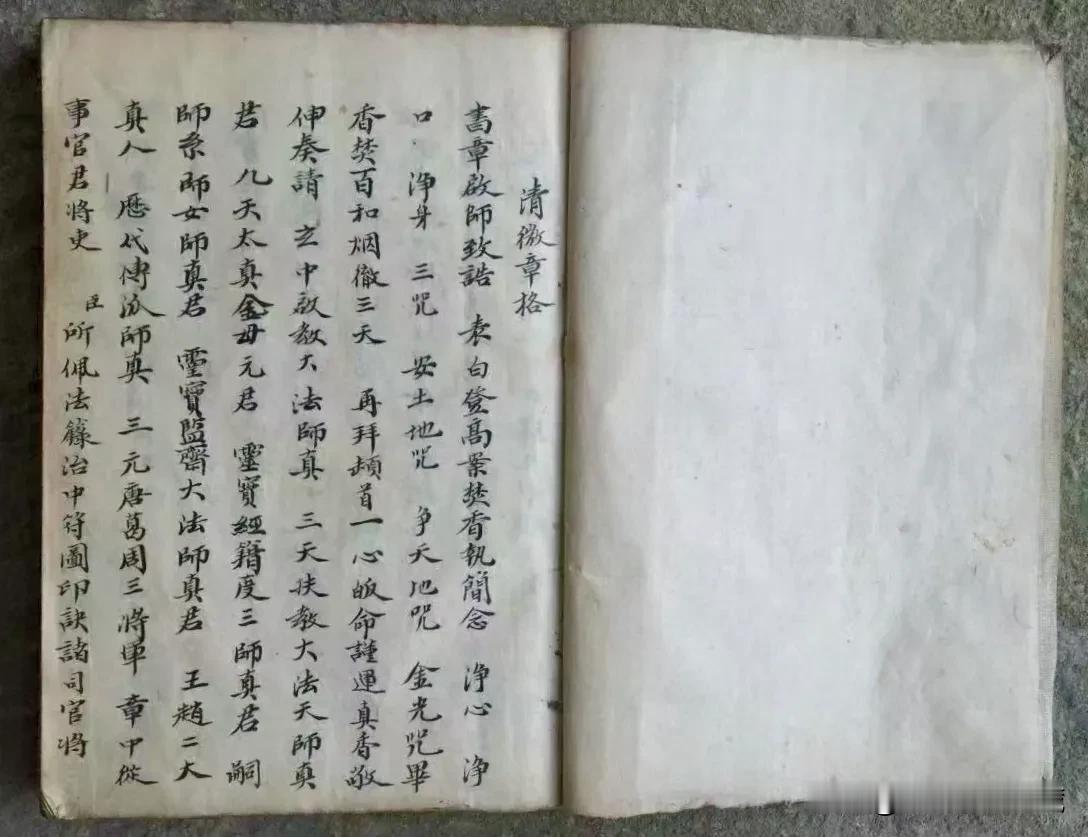 清微章格
書章啟師致誥　表白登髙景焚香執簡念　淨心　淨
口　淨身　三咒　安土地咒　争天地咒　金光咒畢
香焚百和烟徹三天　再拜頓首一心皈命謹運真香敬
伸奏請　玄中啟教大法師真　三天扶教大法天師真
君　九天太真金母元君　靈寳經籍度三師真君　嗣
師系師女師真君　靈寳監齋大法師真君　王趙二大
真人　歷代傳派師真　三元唐葛周三將軍　章中從
事官君將吏　臣所佩法籙治中符圖印訣諸司官將